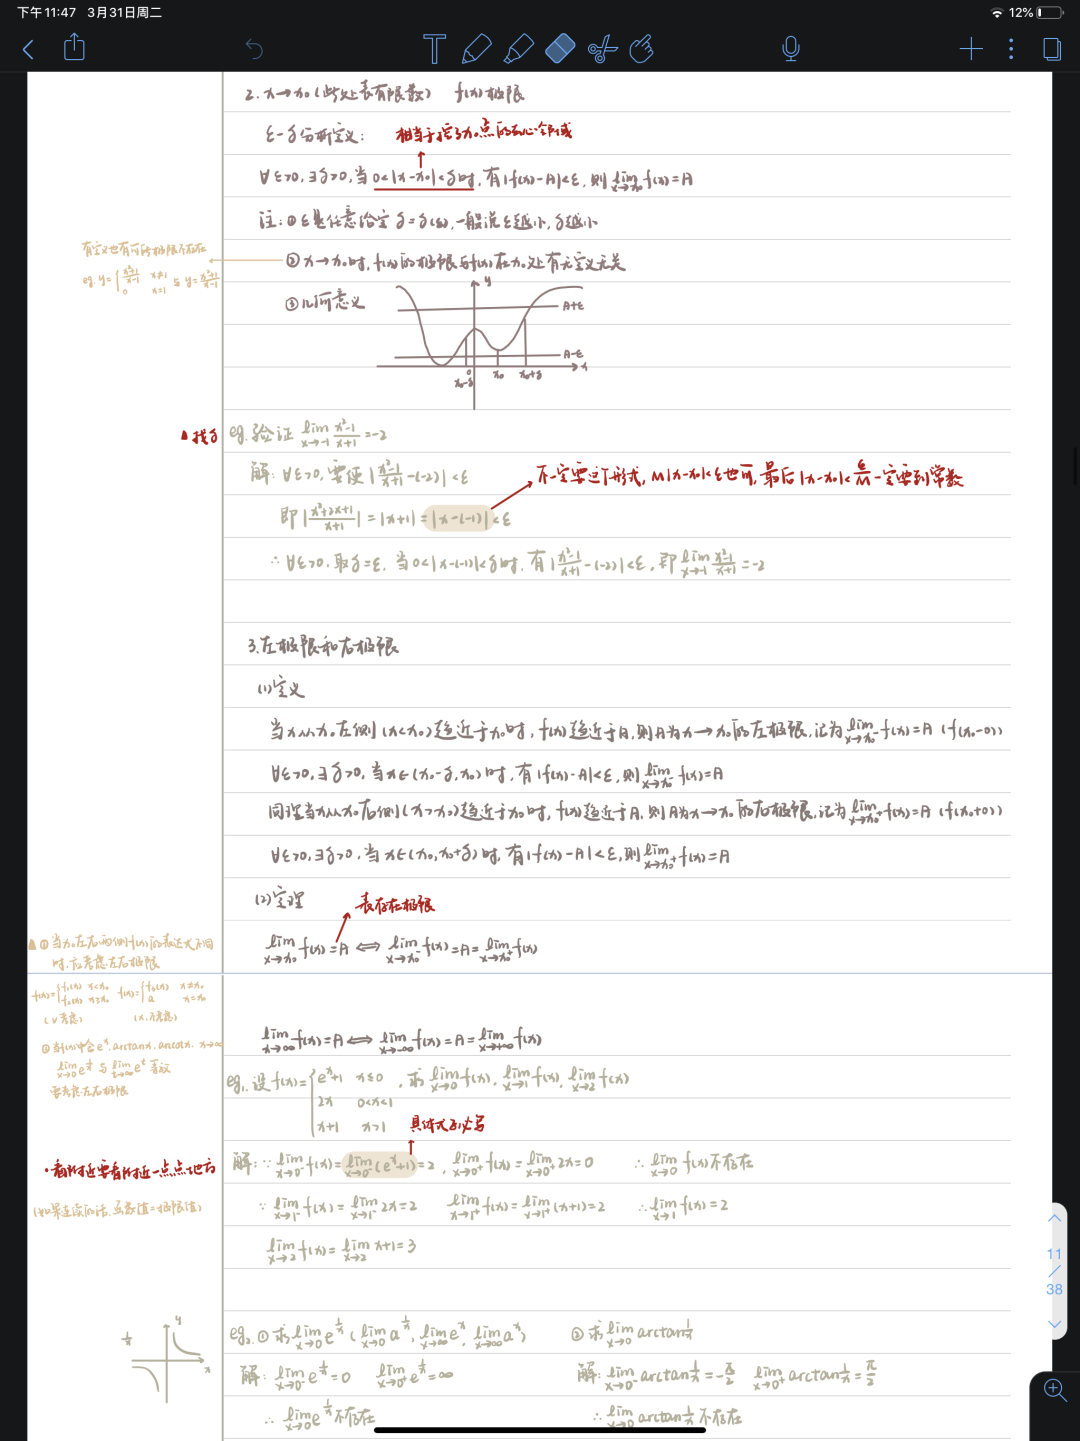 下午11:47 3月31日周二
12%
2. x→x₀(此处表有限数) f(x)极限
ε-δ分析定义: 相当于指了x₀点的去心邻域
∀ε>0,∃δ>0,当0<|x-x₀|<δ时,有|f(x)-A|<ε,则lim x→x₀ f(x)=A
注:①ε是任意给定 δ=δ(ε),一般说ε越小,δ越小
有定义也有可能极限不存在
②x→x₀时,f(x)的极限与f(x)在x₀处有无定义无关
eg. y={ (x²+1)/(x-1) x≠1
0 x=1 与 y=(x²+1)/(x-1)
③几何意义
y
A+ε
A-ε
0 x
x₀-δ x₀ x₀+δ
▲找δ
eg.验证 lim x→-1 (x²-1)/(x+1)=-2
解:∀ε>0,要使|(x²-1)/(x+1)-(-2)|<ε
不一定要这个形式,M|x-x₀|<ε也可,最后|x-x₀|<ε/M一定要到常数
即|(x²+2x+1)/(x+1)|=|x+1|=|x-(-1)|<ε
∴∀ε>0,取δ=ε,当0<|x-(-1)|<δ时,有|(x²-1)/(x+1)-(-2)|<ε,即lim x→-1 (x²-1)/(x+1)=-2
3.左极限和右极限
(1)定义
当x从x₀左侧(x<x₀)趋近于x₀时,f(x)趋近于A,则A为x→x₀的左极限,记为lim x→x₀⁻ f(x)=A (f(x₀-0))
∀ε>0,∃δ>0,当x∈(x₀-δ,x₀)时,有|f(x)-A|<ε,则lim x→x₀⁻ f(x)=A
同理当x从x₀右侧(x>x₀)趋近于x₀时,f(x)趋近于A,则A为x→x₀的右极限,记为lim x→x₀⁺ f(x)=A (f(x₀+0))
∀ε>0,∃δ>0,当x∈(x₀,x₀+δ)时,有|f(x)-A|<ε,则lim x→x₀⁺ f(x)=A
(2)定理
表存在极限
lim x→x₀ f(x)=A ⟺ lim x→x₀⁻ f(x)=A=lim x→x₀⁺ f(x)
▲①当x₀左右两侧f(x)的表达式不同
时,应考虑左右极限
f(x)={f₁(x) x<x₀ f(x)={f₁(x) x≠x₀
f₂(x) x≥x₀ a x=x₀
(√考虑) (×,不考虑)
②当f(x)中含eˣ,arctanx,arccotx, x→∞
lim x→0 e^(1/x) 与 lim x→∞ eˣ 等效
要考虑左右极限
lim x→∞ f(x)=A ⟺ lim x→-∞ f(x)=A=lim x→+∞ f(x)
eg₁.设f(x)={eˣ+1 x≤0 ,求lim x→0 f(x),lim x→1 f(x),lim x→2 f(x)
2x 0<x<1
x+1 x>1
具体式子必写
•看附近要看附近一点点地方
解:∵lim x→0⁻ f(x)=lim x→0⁻ (eˣ+1)=2,lim x→0⁺ f(x)=lim x→0⁺ 2x=0 ∴lim x→0 f(x)不存在
(如果连续的话,函数值=极限值)
∵lim x→1⁻ f(x)=lim x→1⁻ 2x=2 lim x→1⁺ f(x)=lim x→1⁺ (x+1)=2 ∴lim x→1 f(x)=2
lim x→2 f(x)=lim x→2 x+1=3
1/x y x
eg₂.①求lim x→0 e^(1/x) (lim x→0 a^(1/x),lim x→∞ eˣ,lim x→∞ aˣ) ②求lim x→0 arctan1/x
解:lim x→0⁻ e^(1/x)=0 lim x→0⁺ e^(1/x)=∞ 解:lim x→0⁻ arctan1/x=-π/2 lim x→0⁺ arctan1/x=π/2
∴lim x→0 e^(1/x)不存在 ∴lim x→0 arctan1/x不存在
11
/
38